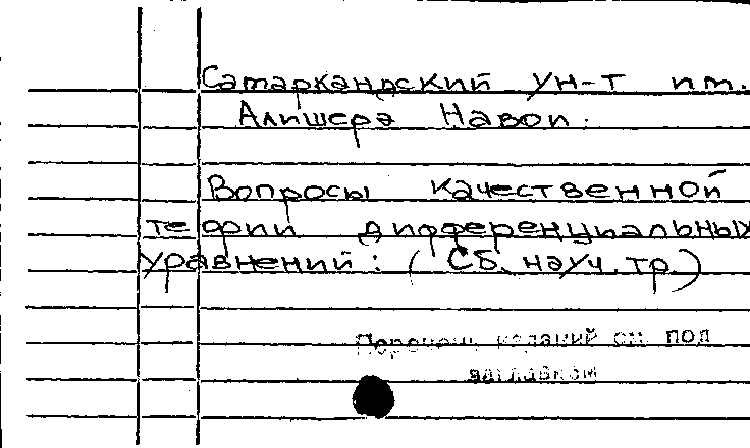 Самаркандский ун-т им.
Алишера Навои.
Вопросы качественной
теории дифференциальных
уравнений: (Сб. науч. тр.)
Перечень изданий см. под
заглавием